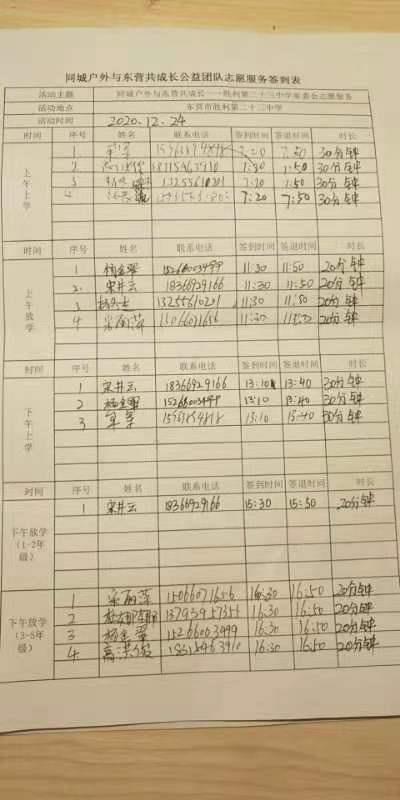 同城户外与东营共成长公益团队志愿服务签到表
活动主题 同城户外与东营共成长——胜利第二十三中学家委会志愿服务
活动地点 东营市胜利第二十三中学
活动时间 2020.12.24
时间 序号 姓名 联系电话 签到时间 签退时间 时长
上午上学
1 7:20 7:50 30分钟
2 7:50 30分钟
3 7:20 7:50 30分钟
4 7:20 7:50 30分钟
时间 序号 姓名 联系电话 签到时间 签退时间 时长
上午放学
1 杨金翠 15266003499 11:30 11:50 20分钟
2 宋井云 18366929166 11:30 11:50 20分钟
3 13255610201 11:30 11:50 20分钟
4 宋丽萍 15066071656 11:30 11:50 20分钟
时间 序号 姓名 联系电话 签到时间 签退时间 时长
下午上学
1 宋井云 18366929166 13:10 13:40 30分钟
2 杨金翠 15266003499 13:10 13:40 30分钟
3 13:10 13:40 30分钟
时间 序号 姓名 联系电话 签到时间 签退时间 时长
下午放学(1-2年级)
1 宋井云 18366929166 15:30 15:50 20分钟
下午放学(3-5年级)
1 宋丽萍 15066071656 16:30 16:50 20分钟
2 16:30 16:50 20分钟
3 杨金翠 15266003499 16:30 16:50 20分钟
4 16:30 16:50 20分钟